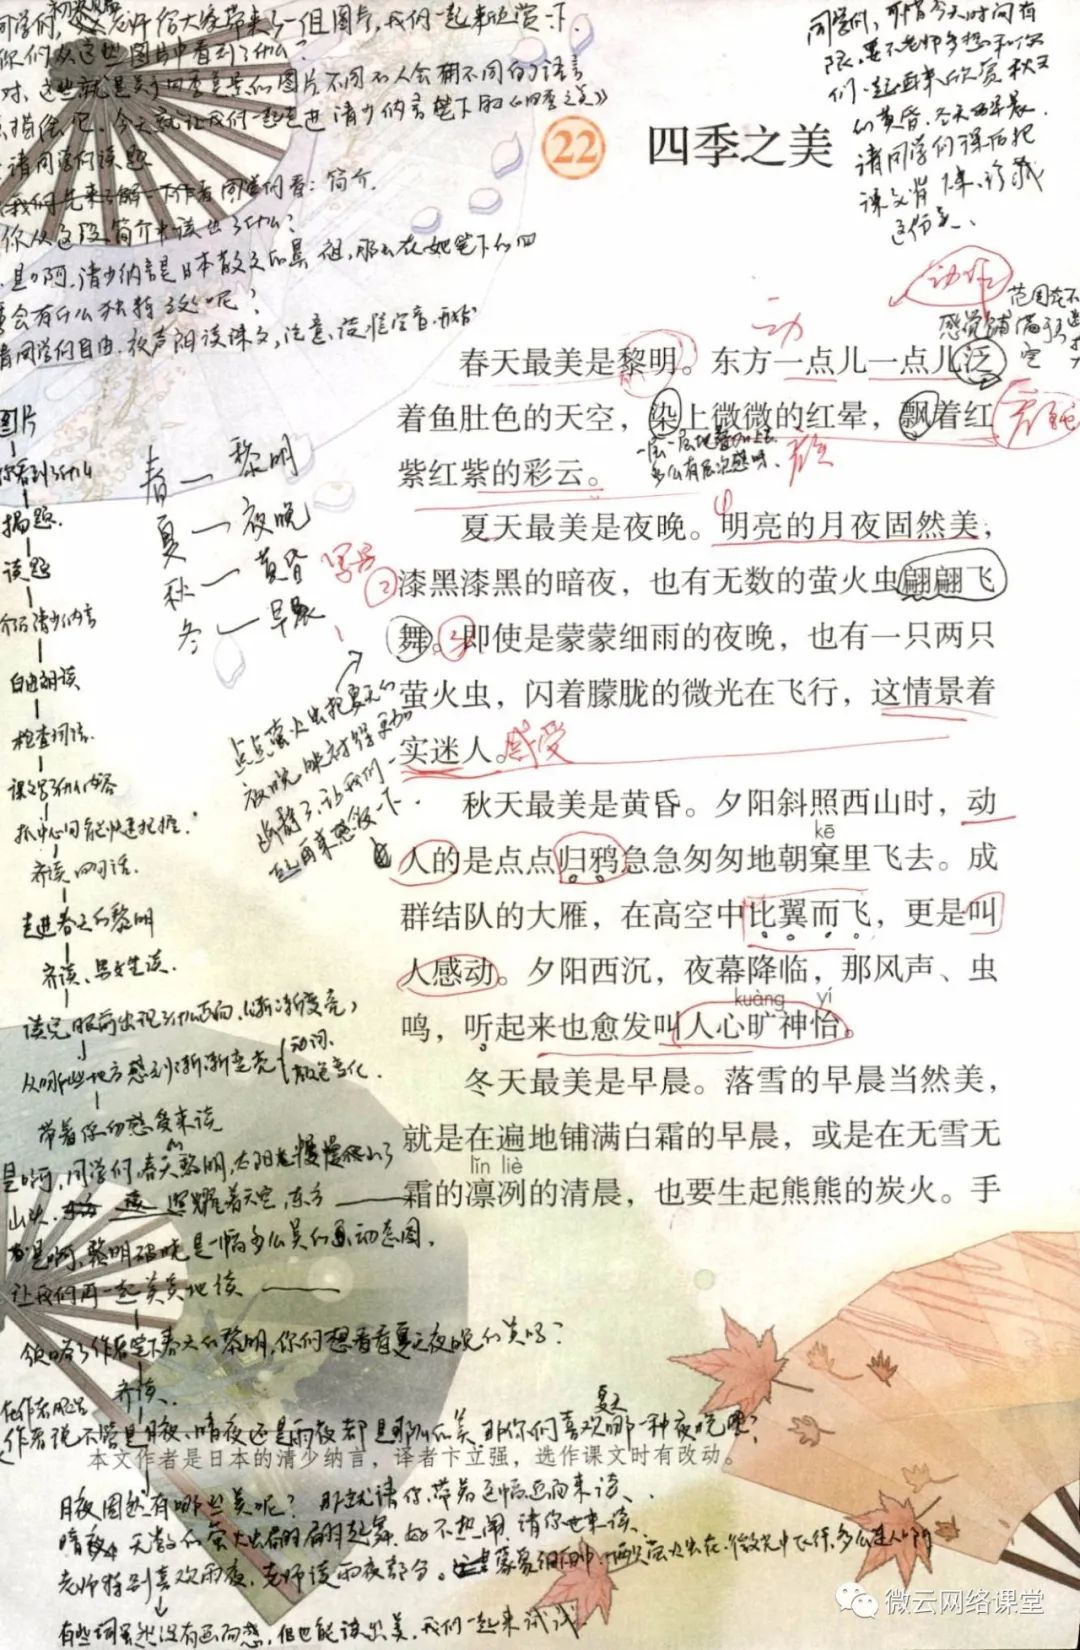 同学们,老师给大家带来了一组图片,我们一起来欣赏一下.
你们从这些图片中看到了什么?
对,这些就是关于四季美景的图片不同的人会用不同的语言
今天就让我们一起走进清少纳言笔下的《四季之美》
请同学们读题
我们先来了解一下作者同学们看:简介.
你从这段简介中读出了什么?
是啊,清少纳言是日本散文的鼻祖,那么在她笔下的四
会有什么独特之处呢?
请同学们自由.放声朗读课文,注意,读准字音.
同学们,可惜今天时间有
限,要不老师多想和你
们一起再来欣赏秋天
的黄昏、冬天的早晨.
请同学们课后把
课文背下来、珍藏
这份美、
22 四季之美
动作
动
春天最美是黎明。东方一点儿一点儿泛
着鱼肚色的天空,染上微微的红晕,飘着红
紫红紫的彩云。
夏天最美是夜晚。明亮的月夜固然美,
漆黑漆黑的暗夜,也有无数的萤火虫翩翩飞
舞。即使是蒙蒙细雨的夜晚,也有一只两只
萤火虫,闪着朦胧的微光在飞行,这情景着
实迷人。感受
秋天最美是黄昏。夕阳斜照西山时,动
kē
人的是点点归鸦急急匆匆地朝窠里飞去。成
群结队的大雁,在高空中比翼而飞,更是叫
人感动。夕阳西沉,夜幕降临,那风声、虫
kuàng yí
鸣,听起来也愈发叫人心旷神怡。
冬天最美是早晨。落雪的早晨当然美,
就是在遍地铺满白霜的早晨,或是在无雪无
lǐn liè
霜的凛冽的清晨,也要生起熊熊的炭火。手
春—黎明
夏—夜晚
秋—黄昏
冬—早晨
点点萤火虫把夏天的
夜晚映衬得更加
幽静了,让我们
再来感受一下.
图片
你看到了什么
揭题.
读题
介绍清少纳言
自由朗读
检查词语.
课文写了什么内容
抓中心句能快速把握.
齐读四句话.
走进春天的黎明
齐读、男女生读.
读完眼前出现了什么画面.(渐渐变亮)
从哪些地方感到渐渐变亮{动词.
颜色变化.
带着你的感受来读
是啊,同学们,春天的黎明,太阳慢慢爬上了
山头.照耀着天空,东方——
是啊,黎明破晓是一幅多么美的动态图.
让我们再一起美美地读——
领略了作者笔下春天的黎明,你们想看看夏天夜晚的美吗?
齐读.
作者说不管是月夜、暗夜还是雨夜都是那么的美那你们喜欢夏天哪一种夜晚呢?
本文作者是日本的清少纳言,译者卞立强,选作课文时有改动。
月夜图有哪些美呢?那就请你带着这幅画面来读.
暗夜 无数的萤火虫翩翩起舞.好不热闹,请你也来读.
老师特别喜欢雨夜.老师读雨夜部分。
有些词虽然没有画面感,但也能读出美.我们一起来试试
微云网络课堂